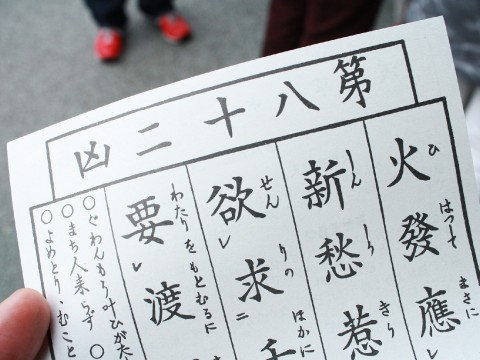 第八十二凶
火發應
ひ はつして まさに
新愁惹
しん しう きう
欲求千
せん りの ほかに
要渡
わたりをもとむるに
○ぐわんもう叶ひがた
○まち人来らず ○
○よめとり・むこと